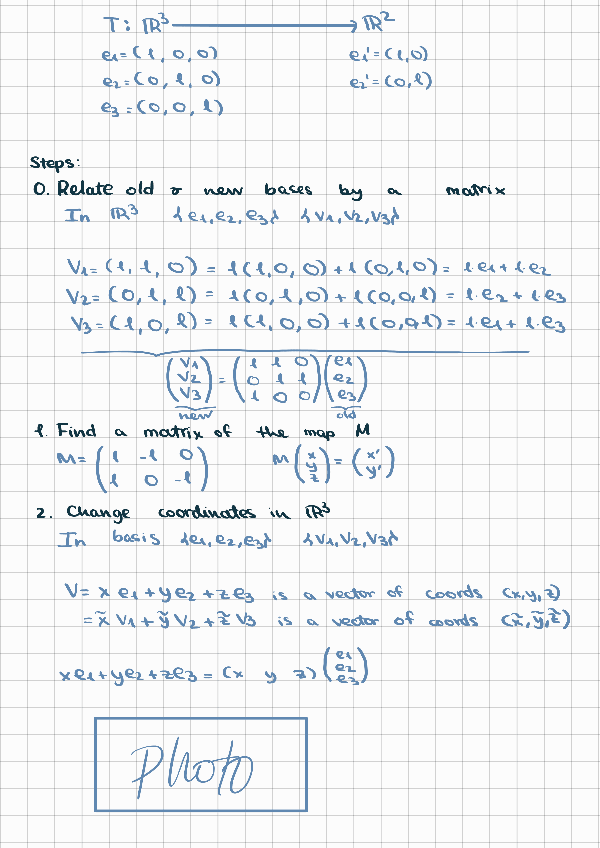 T: ℝ³ ⟶ ℝ²
e1=(1,0,0) e1'=(1,0)
e2=(0,1,0) e2'=(0,1)
e3=(0,0,1)
Steps:
0. Relate old & new bases by a matrix
In ℝ³ {e1,e2,e3} {V1,V2,V3}
V1=(1,1,0) = 1(1,0,0)+1(0,1,0)= 1·e1+1·e2
V2=(0,1,1) = 1(0,1,0)+1(0,0,1)=1·e2+1·e3
V3=(1,0,1) = 1(1,0,0)+1(0,0,1)=1·e1+1·e3
(V1 V2 V3) = (1 1 0 / 0 1 1 / 1 0 0) (e1 e2 e3)
new old
1. Find a matrix of the map M
M= (1 -1 0 / 1 0 -1) M (x y z) = (x' y')
2. Change coordinates in ℝ³
In basis {e1,e2,e3} {V1,V2,V3}
V= x e1+ye2+ze3 is a vector of coords (x,y,z)
=x̃ V1+ỹ V2+z̃ V3 is a vector of coords (x̃,ỹ,z̃)
xe1+ye2+ze3=(x y z) (e1 e2 e3)
Photo